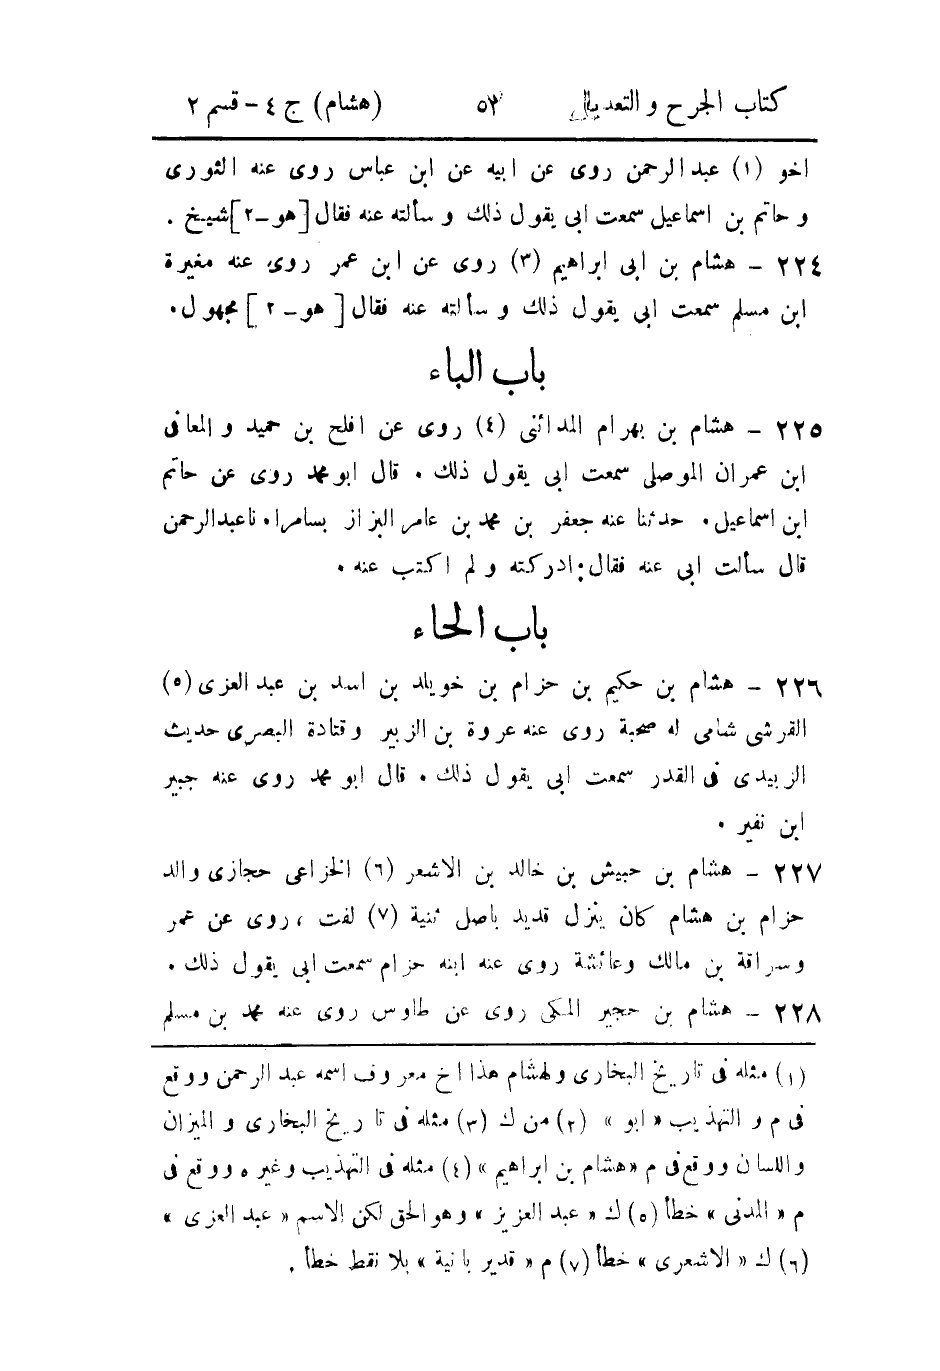 كتاب الجرح والتعديل ٥٣ (هشام) ج ٤ - قسم ٢
اخو (١) عبد الرحمن روى عن ابيه عن ابن عباس روى عنه الثورى
و حاتم بن اسماعيل سمعت ابى يقول ذلك و سألته عنه فقال [هو-٢] شيخ .
٢٢٤ - هشام بن ابى ابراهيم (٣) روى عن ابن عمر روى عنه مغيرة
ابن مسلم سمعت ابى يقول ذلك و سألته عنه فقال [هو-٢] مجهول .
باب الباء
٢٢٥ - هشام بن بهرام المدائنى (٤) روى عن افلح بن حميد و المعافى
ابن عمران الموصلى سمعت ابى يقول ذلك . قال ابو محمد روى عن حاتم
ابن اسماعيل . حدثنا عنه جعفر بن محمد بن عامر البزاز بسامرا . نا عبد الرحمن
قال سألت ابى عنه فقال : ادركته و لم اكتب عنه .
باب الحاء
٢٢٦ - هشام بن حكيم بن حزام بن خويلد بن اسد بن عبد العزى (٥)
القرشى شامى له صحبة روى عنه عروة بن الزبير و قتادة البصرى حديث
الزبيدى فى القدر سمعت ابى يقول ذلك . قال ابو محمد روى عنه جبير
ابن نفير .
٢٢٧ - هشام بن حبيش بن خالد بن الاشعر (٦) الخزاعى حجازى والد
حزام بن هشام كان ينزل قديد باصل ثنية (٧) لفت ، روى عن عمر
وسراقة بن مالك وعائشة روى عنه ابنه حزام سمعت ابى يقول ذلك .
٢٢٨ - هشام بن حجير المكى روى عن طاوس روى عنه محمد بن مسلم
(١) مثله فى تاريخ البخارى ولهشام هذا اخ معروف اسمه عبد الرحمن ووقع
فى م و التهذيب « ابو » (٢) من ك (٣) مثله فى تاريخ البخارى و الميزان
واللسان ووقع فى م «هشام بن ابراهيم » (٤) مثله فى التهذيب وغيره ووقع فى
م « المدنى » خطأ (٥) ك « عبد العزيز » وهو الحق لكن الاسم « عبد العزى »
(٦) ك « الاشعرى » خطأ (٧) م « قدير با نية » بلا نقط خطأ .